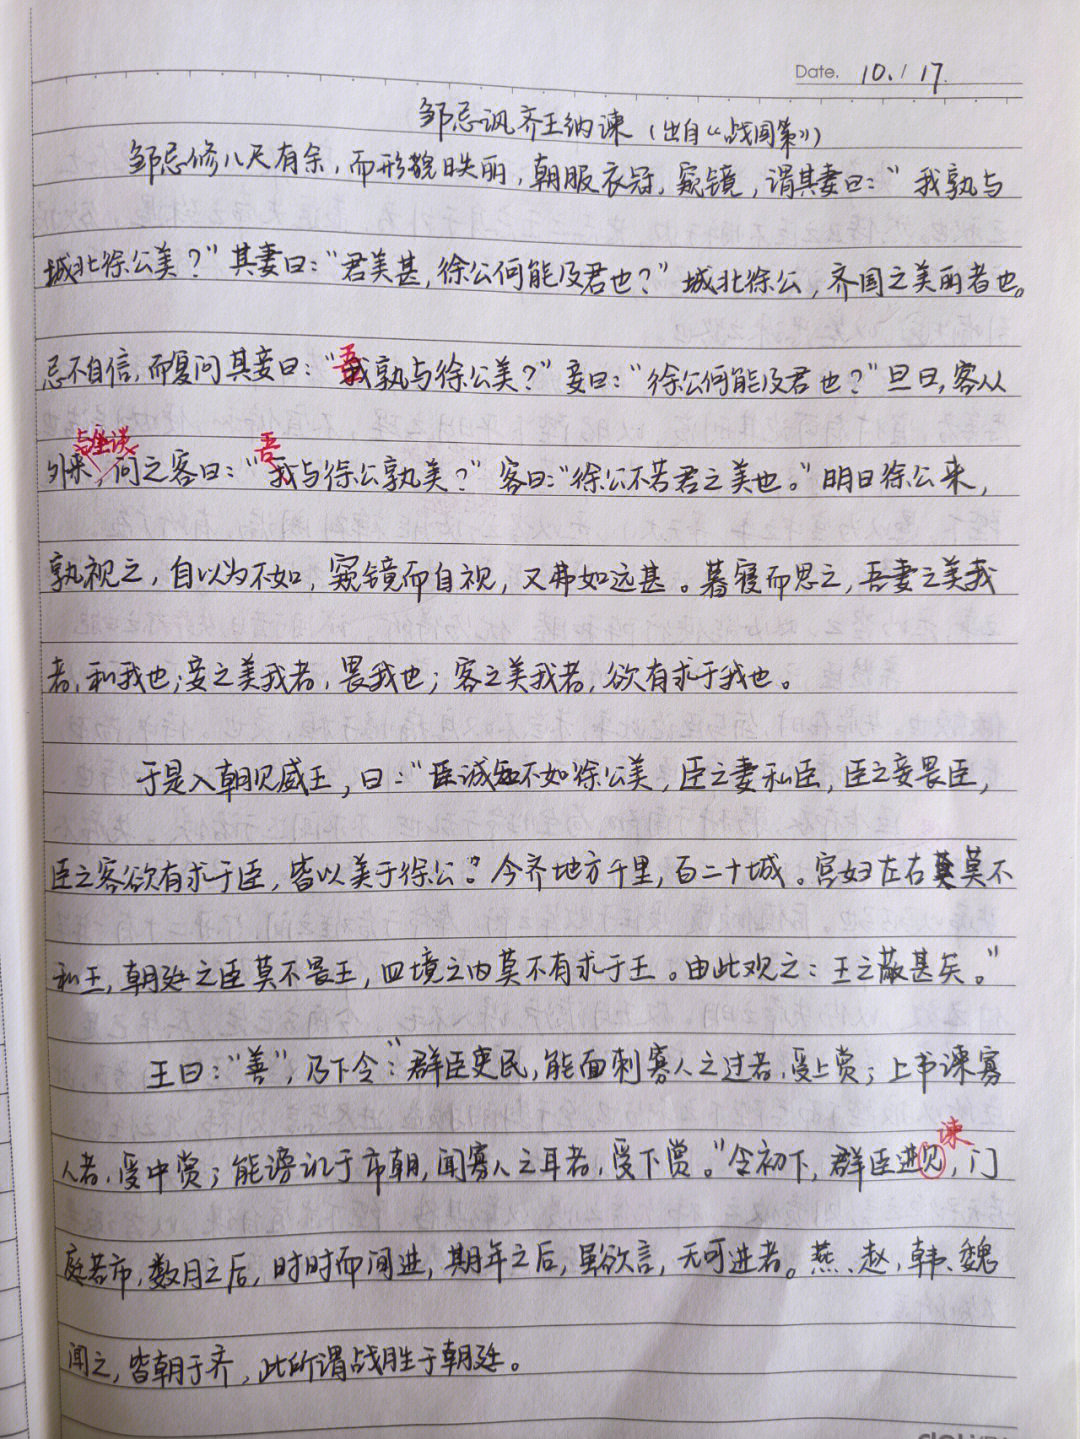 Date. 10./17.
邹忌讽齐王纳谏（出自《战国策》）
邹忌修八尺有余，而形貌昳丽，朝服衣冠，窥镜，谓其妻曰：“我孰与
城北徐公美？”其妻曰：“君美甚，徐公何能及君也？”城北徐公，齐国之美丽者也。
忌不自信，而复问其妾曰：“吾孰与徐公美？”妾曰：“徐公何能及君也？”旦日，客从
外来，与坐谈，问之客曰：“吾与徐公孰美？”客曰：“徐公不若君之美也。”明日徐公来，
孰视之，自以为不如，窥镜而自视，又弗如远甚。暮寝而思之，吾妻之美我
者，私我也；妾之美我者，畏我也；客之美我者，欲有求于我也。
于是入朝见威王，曰：“臣诚知不如徐公美，臣之妻私臣，臣之妾畏臣，
臣之客欲有求于臣，皆以美于徐公。今齐地方千里，百二十城。宫妇左右莫不
私王，朝廷之臣莫不畏王，四境之内莫不有求于王。由此观之：王之蔽甚矣。”
王曰：“善”，乃下令：“群臣吏民，能面刺寡人之过者，受上赏；上书谏寡
人者，受中赏；能谤讥于市朝，闻寡人之耳者，受下赏。”令初下，群臣进谏，门
庭若市，数月之后，时时而间进，期年之后，虽欲言，无可进者。燕、赵，韩、魏
闻之，皆朝于齐，此所谓战胜于朝廷。